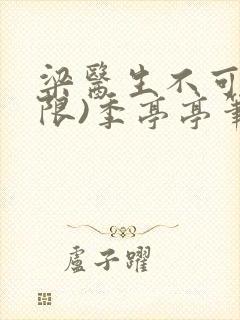 梁醫生不可
限)季亭亭筆
盧子躍